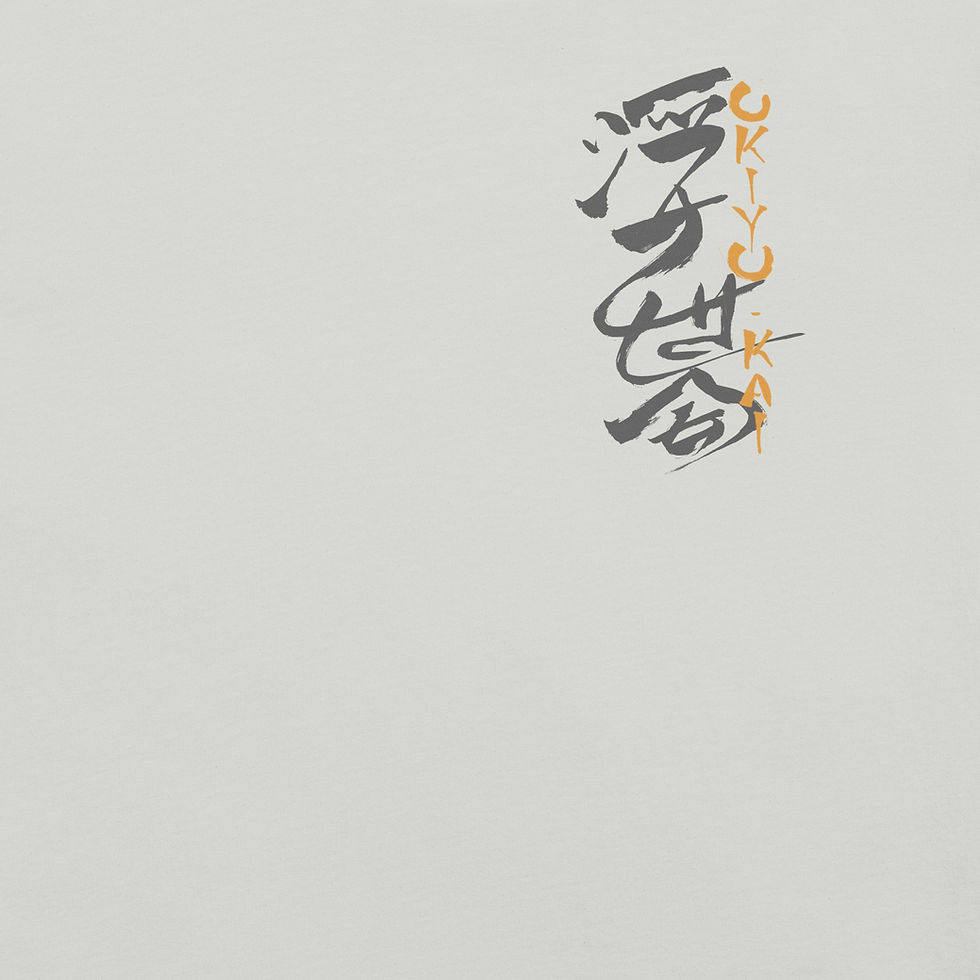 浮世会
UKIYO-KAI